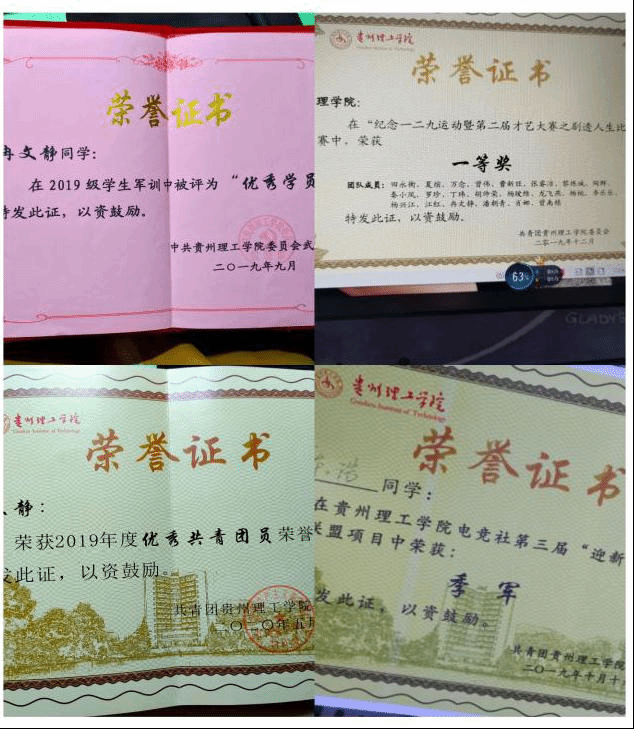 荣誉证书
冉文静同学：
在2019级学生军训中被评为“优秀学员
特发此证，以资鼓励。
中共贵州理工学院委员会武
二〇一九年九月
贵州理工学院
Guizhou Institute of Technology
荣誉证书
理学院：
在“纪念一二九运动暨第二届才艺大赛之剧透人生比
赛中，荣获
一等奖
团队成员：田永衡、夏缤、万念、曾伟、曹新旺、张睿洁、黎炼城、陶群、
秦小凤、罗珍、丁玮、胡帅荣、杨骏维、龙飞燕、杨桃、李乐乐、
杨兴江、江红、冉文静、潘朝青、肖娜、曾南福
特发此证，以资鼓励。
共青团贵州理工学院委员会
二零一九年十二月
63%
GLADYS
贵州理工学院
Guizhou Institute of Technology
荣誉证书
静：
荣获2019年度优秀共青团员荣誉
发此证，以资鼓励。
共青团贵州理工学院
二〇二〇年五月
贵州理工学院
Guizhou Institute of Technology
荣誉证书
浩同学：
在贵州理工学院电竞社第三届“迎新
联盟项目中荣获：
季军
发此证，以资鼓励。
共青团贵州理工学院
二〇一九年十月十